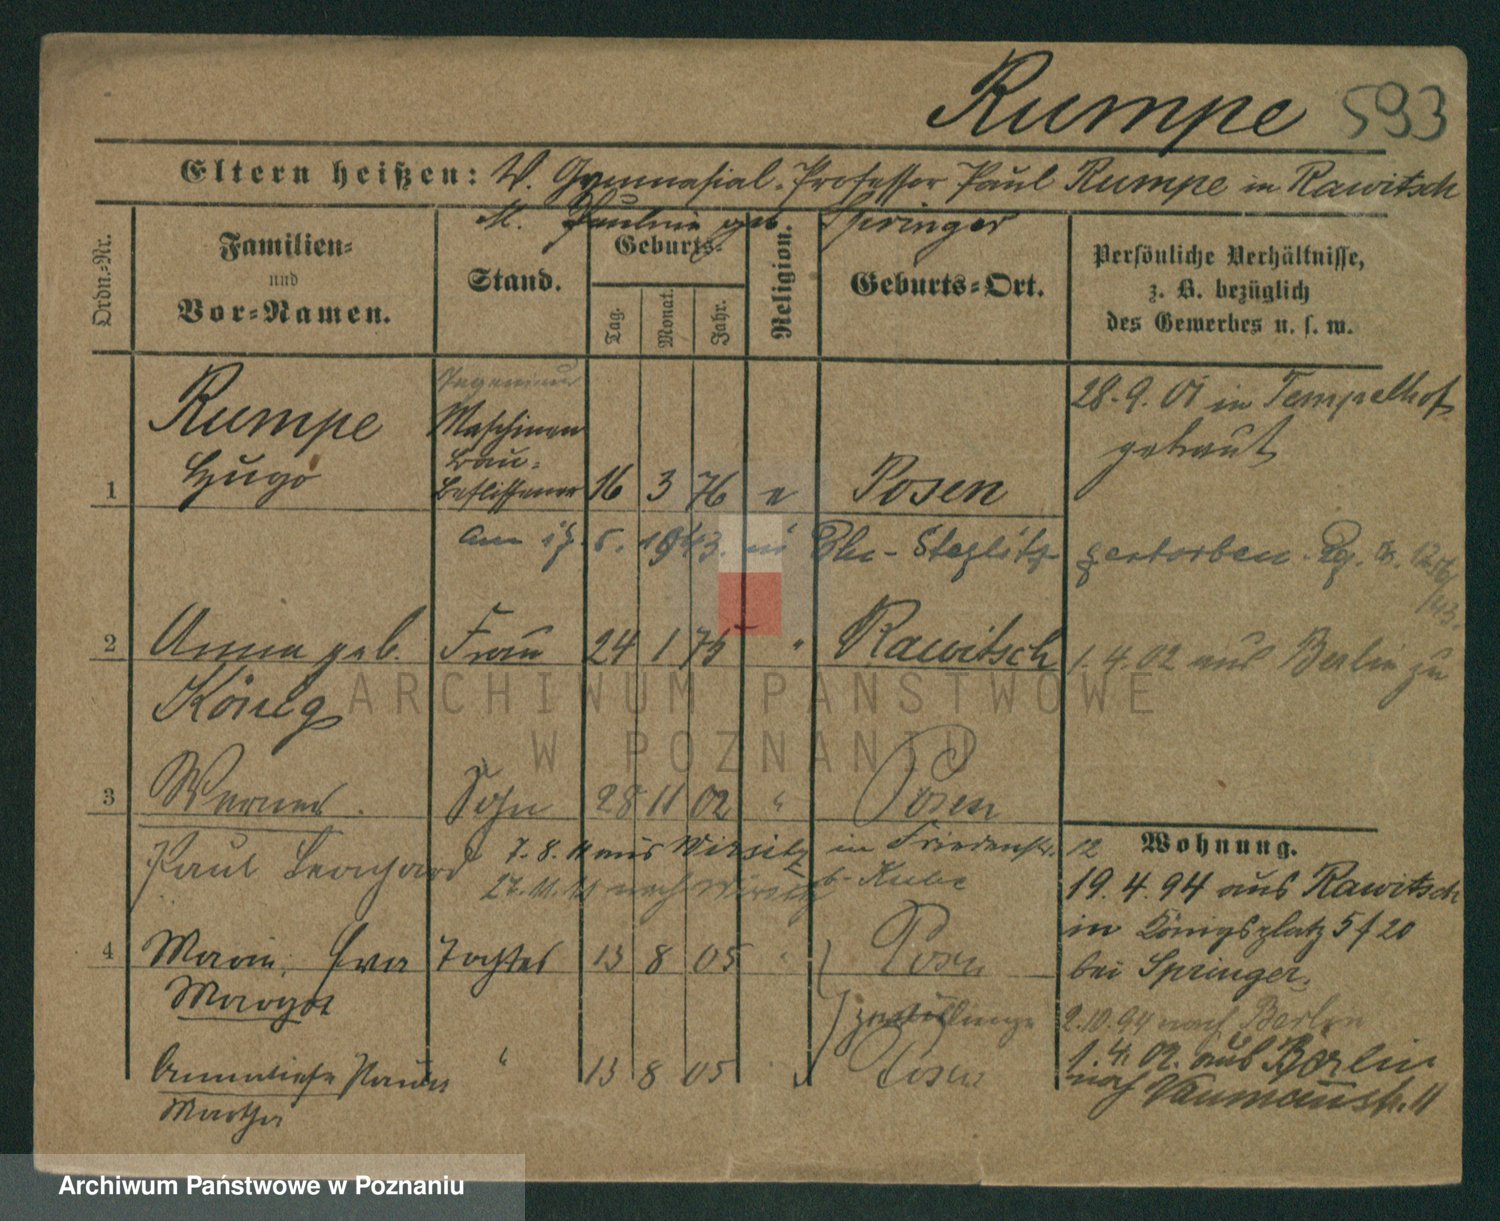 Rumpe 593
Eltern heißen: V. Gymnasial-Professor Paul Rumpe in Rawitsch
M. Pauline geb Springer
Ordn.-Nr.
Familien-
und
Vor-Namen.
Stand.
Geburts-
Tag.
Monat.
Jahr.
Religion.
Geburts-Ort.
Persönliche Verhältnisse,
z. B. bezüglich
des Gewerbes u. s. w.
Ingenieur
1 Rumpe Hugo Maschinen bau- beflissener 16 3 76 e Posen
28.9.01 in Tempelhof
getraut
am 17. 5. 1943. in Bln-Steglitz gestorben.
2 Anna geb. König Frau 24 1 75 " Rawitsch
1.4.02 aus Berlin zu
3 Werner. Sohn 28 11 02 " Posen
Paul Leonhard
7.8.11 aus Wirsitz in Friedenstr. 12
27.11.11 nach Wirsitz b. Kube
Wohnung.
19.4.94 aus Rawitsch
in Königsplatz 5 f 20
bei Springer.
2.10.94 nach Berlin
1.4.02. aus Berlin
nach Naumannstr. 11
4 Marie, Eva Margot Tochter 13 8 05 " Posen
Zwillinge
Anneliese Paula Martha " 13 8 05 Posen
ARCHIWUM PAŃSTWOWE
W POZNANIU
Archiwum Państwowe w Poznaniu